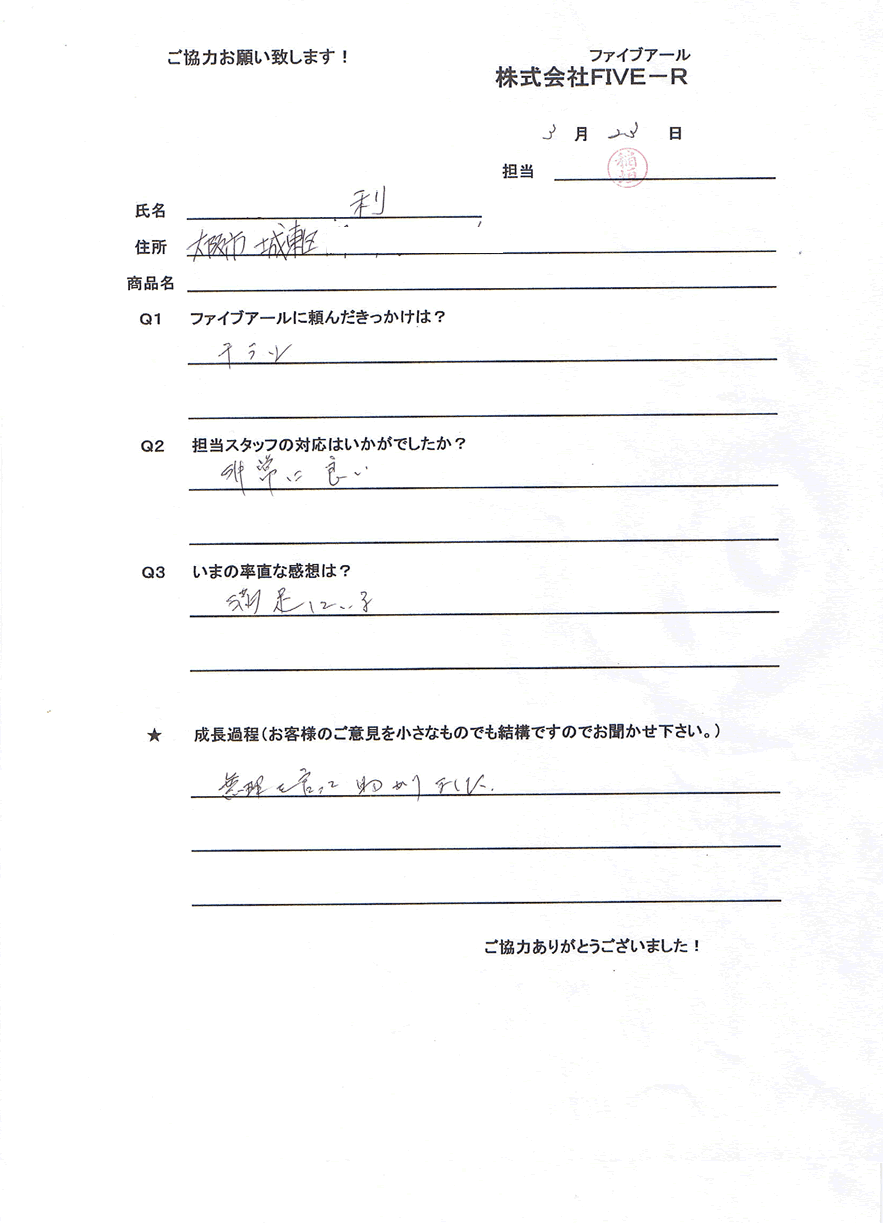 ご協力お願い致します！
ファイブアール
株式会社FIVE－R
3月23日
担当 稲垣
氏名 利
住所 大阪市城東区
商品名
Q1 ファイブアールに頼んだきっかけは？
チラシ
Q2 担当スタッフの対応はいかがでしたか？
非常に良い
Q3 いまの率直な感想は？
満足している
★ 成長過程（お客様のご意見を小さなものでも結構ですのでお聞かせ下さい。）
無理を言って助かりました.
ご協力ありがとうございました！